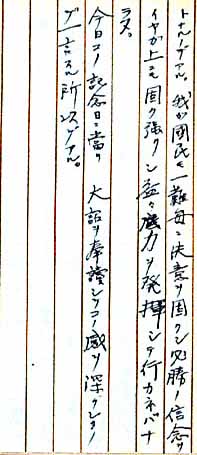 トナルノデアル。我ガ国民ハ一難毎ニ決意ヲ固クシ必勝ノ信念ヲ
イヤガ上ニモ固ク張クシ益々底力ヲ発揮シテ行カネバナ
ラヌ。
今日コノ記念日ニ當リ大詔ヲ奉讀シツコノ感ヲ深クシ
一言スル所以デアル。